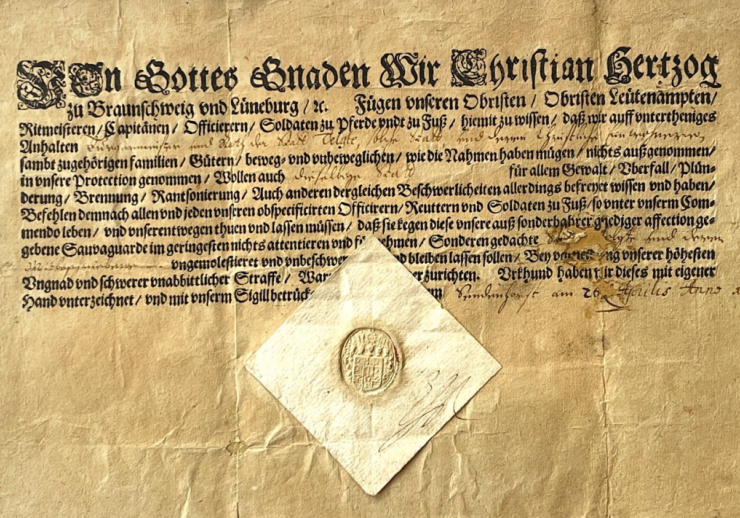 VOn Gottes Gnaden Wir Christian Hertzog
zu Braunschweig vnd Lüneburg / ꝛc. Fügen vnseren Obristen / Obristen Leütenampten /
Ritmeisteren / Capitänen / Officierern / Soldaten zu Pferde vndt zu Fuß / hiemit zu wissen / daß wir auff vntertheniges
Anhalten Burgermeister und Ratz der Statt Telgte, selbe Statt und deren
sambt zugehörigen familien / Gütern / beweg- vnd vnbeweglichen / wie die Nahmen haben mügen / nichts außgenommen /
in vnsere Protection genommen / Wollen auch dieselbige Statt für allem Gewalt / Vberfall / Plün-
derung / Brennung / Rantsonierung / Auch anderen dergleichen Beschwerlicheiten allerdings befreyet wissen vnd haben /
Befehlen demnach allen vnd jeden vnseren obspecificirten Officirern / Reuttern vnd Soldaten zu Fuß / so vnter vnserm Com-
mendo leben / vnd vnsertwegen thuen vnd lassen müssen / daß sie kegen diese vnsere auß sonderbahrer gnediger affection ge-
gebene Sauvaguarde im geringesten nichts attentieren vnd Sonderen gedachte Telgte und deren
vngemolestieret vnd bleiben lassen sollen / Bey vnserer höhesten
Vngnad vnd schwerer vnabbittlicher Straffe / zurichten. Vrkhund haben dieses mit eigener
Hand vnterzeichnet / vnd mit vnserm Sigill Sendenhorst am 26 Aprilis Anno